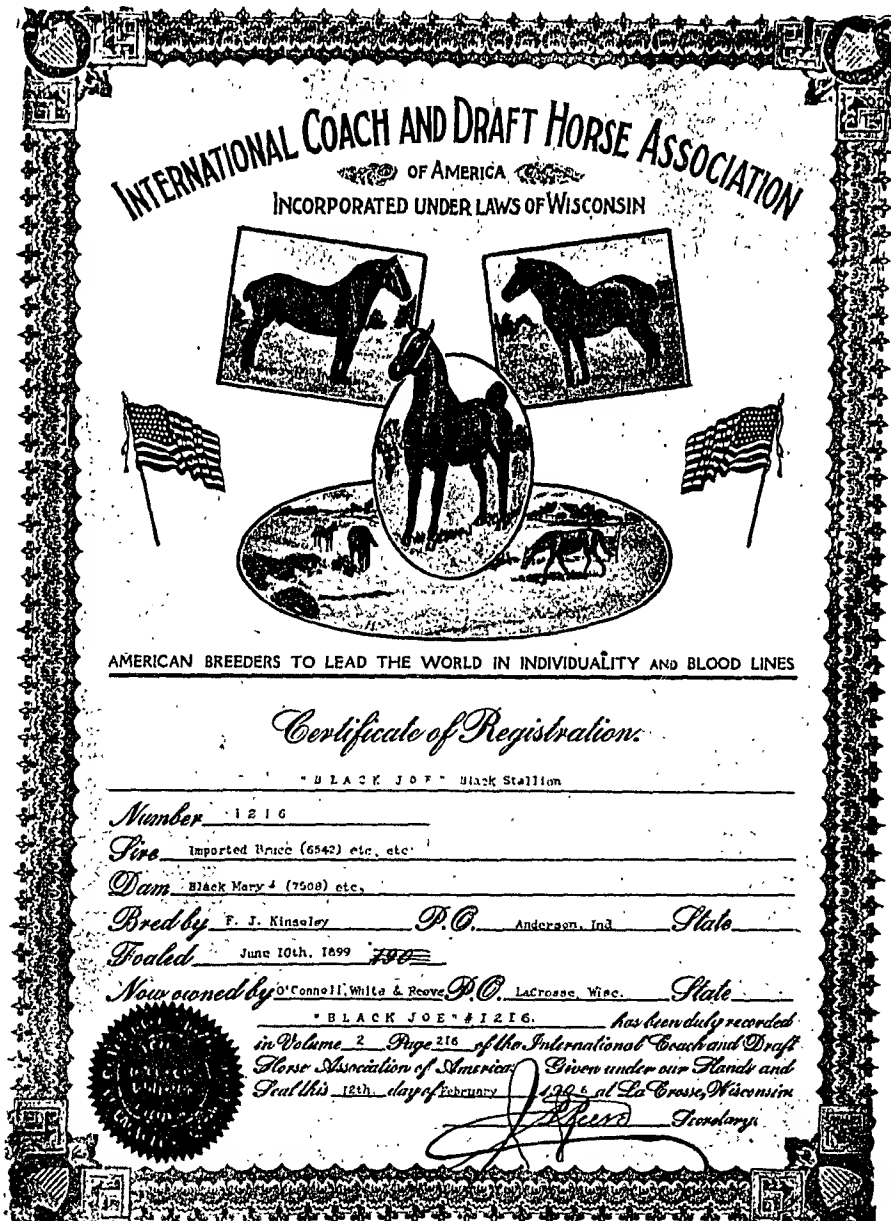 INTERNATIONAL COACH AND DRAFT HORSE ASSOCIATION
OF AMERICA
INCORPORATED UNDER LAWS OF WISCONSIN
AMERICAN BREEDERS TO LEAD THE WORLD IN INDIVIDUALITY AND BLOOD LINES
Certificate of Registration.
"BLACK JOE" Black Stallion
Number 1216
Sire Imported Bruce (6542) etc, etc
Dam Black Mary 4 (7508) etc,
Bred by F. J. Kinsley P.O. Anderson, Ind State
Foaled June 10th, 1899 190
Now owned by O'Connell, White & Reove, P.O. LaCrosse, Wisc. State
"BLACK JOE" #1216. has been duly recorded
in Volume 2 Page 216 of the International Coach and Draft
Horse Association of America. Given under our Hands and
Seal this 12th. day of February 1906 at La Crosse, Wisconsin
Secretary.